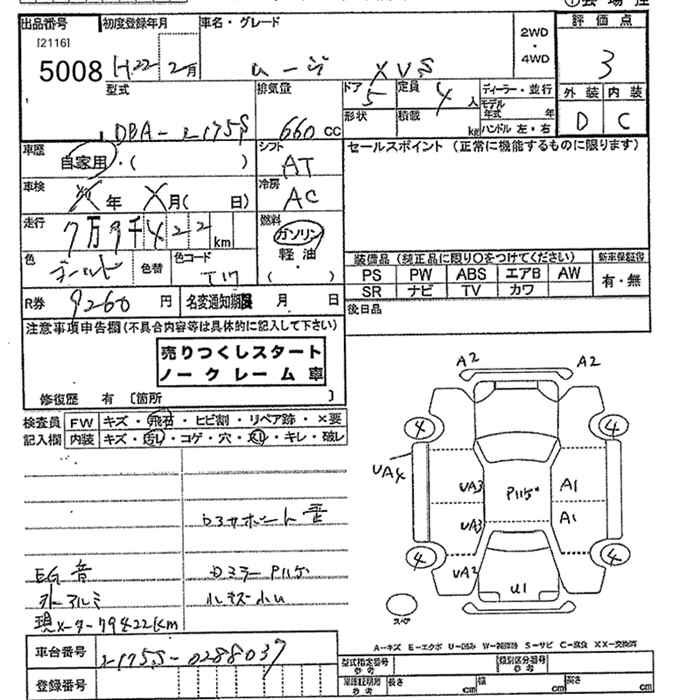 出品番号 初度登録年月 車名・グレード 2WD・4WD 評価点
[2116]
5008 H.22 2月 ムーヴ XVS 3
型式 排気量 ドア 5 定員 4人 ディーラー・並行 外装 内装
DBA-L175S 660cc 形状 積載 kg モデル年式 年 ハンドル 左・右 D C
車歴 自家用・( ) シフト AT セールスポイント (正常に機能するものに限ります)
車検 年 月( 日) 冷房 AC
走行 7万9千422km 燃料 ガソリン 軽油 ( )
色 ゴールド 色替 色コード T17
装備品 (純正品に限り○をつけてください) 新車保証書
PS PW ABS エアB AW 有・無
SR ナビ TV カワ
R券 9260円 名変通知期限 月 日 後日品
注意事項申告欄(不具合内容等は具体的に記入して下さい)
売りつくしスタート
ノークレーム車
修復歴 有 〔箇所 〕
検査員 FW キズ・飛石・ヒビ割・リペア跡・×要
記入欄 内装 キズ・汚レ・コゲ・穴・スレ・キレ・破レ
A2 A2
4 4
UA4 UA3 Pハゲ A1
UA3 A1
4 UA2 U1 4
スペア
ロアサポート音
EG音 ロミラーPハゲ
外アルミ 小キズ小U
現メーター79422km
A-キズ E-エクボ U-凹み W-補修跡 S-サビ C-腐食 XX-交換済
車台番号 L175S-0288037
型式指定番号 参考 類別区分番号 参考
登録番号 車検証記載 参考 長さ cm 幅 cm 高さ cm